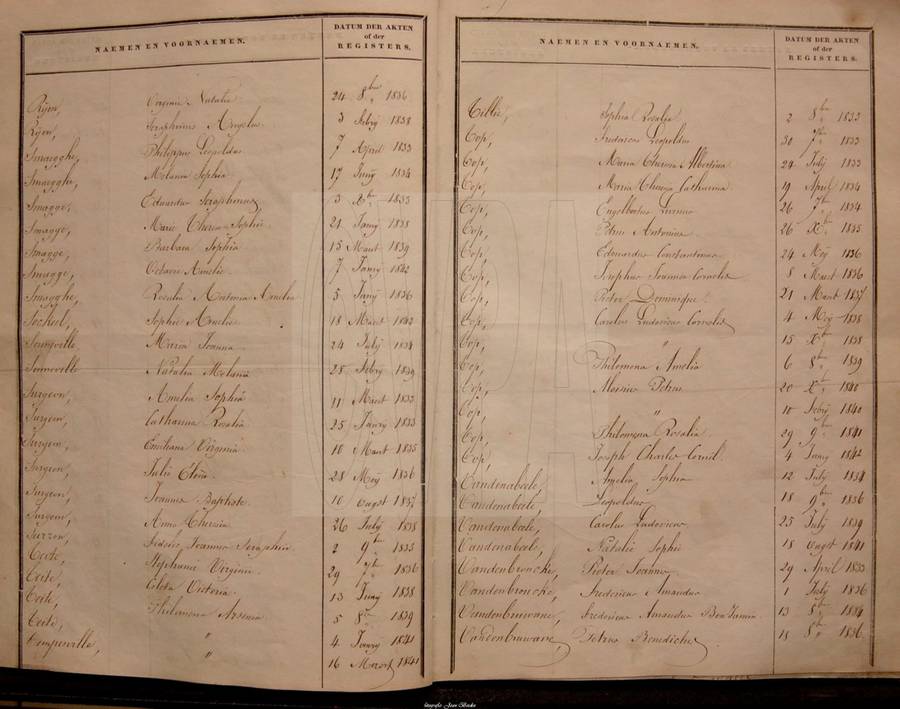 NAEMEN EN VOORNAEMEN.
DATUM DER AKTEN
of der
REGISTERS.
Rijon, Virginie Natalie 24 8bre 1836
Rijon, Seraphinus Angelus 3 febry 1838
Smaegghe, Philippus Leopoldus 7 April 1833
Smaegghe, Melania Sophia 17 Juny 1834
Smagge, Eduardus Seraphinus 3 Xbr 1835
Smagge, Marie Theresa Sophie 21 Janry 1838
Smagge, Barbara Sophia 15 Maart 1839
Smagge, Octavie Amelie 7 Janry 1842
Smagghe, Rosalia Antonia Amelia 5 Juny 1836
Sophie Amelie 18 Maart 1842
Maria Joanna 24 July 1834
Natalia Melania 28 febry 1839
Surgeon, Amelia Sophia 11 Maart 1833
Surgeon, Catharina Rosalia 25 Janry 1833
Surgeon, Emiliana Virginia 10 Maart 1835
Surgeon, Julie 28 Meÿ 1836
Surgeon, Joannes Baptiste 10 Ougst 1837
Surgeon, Anna Theresia 26 July 1838
Joannes Seraphin 2 9bre 1835
Stephania Virginia 29 7bre 1836
Coleta Victoria 13 Juny 1838
Philomena Arsenia 5 8bre 1839
" 4 Janry 1841
" 16 Maart 1841
NAEMEN EN VOORNAEMEN.
DATUM DER AKTEN
of der
REGISTERS.
Sophia Rosalia 2 8bre 1833
Cop, Fredericus Leopoldus 30 7bre 1833
Cop, Maria Theresa Albertina 24 July 1833
Cop, Maria Theresa Catharina 19 April 1834
Cop, Engelbertus 26 7bre 1834
Cop, Petrus Antonius 26 Xbre 1835
Cop, Eduardus Constantinus 24 Meÿ 1836
Cop, Josephus Joannes Cornelis 8 Maart 1836
Cop, Pieter Dominique 21 Maart 1837
Cop, Carolus Ludovicus Cornelis 4 Meÿ 1838
Cop, " 15 Xbre 1838
Cop, Philomena Amelia 6 8bre 1839
Cop, Aloisius Petrus 20 Xbr 1840
Cop, " 10 febry 1840
Cop, Philomena Rosalia 29 9br 1841
Cop, Joseph Charles Cornil 4 Janry 1842
Vandenabeele, Amelia Sophia 12 July 1834
Vandenabeele, Leopoldus 18 9bre 1836
Vandenabeele, Carolus Ludovicus 25 July 1839
Vandenabeele, Natalie Sophie 18 Ougst 1841
Vandenbroucke, Pieter Joannes 29 April 1833
Vandenbroucke, Fredericus Amandus 1 July 1836
Vandenbuwane, Fredericus Amandus Benjamin 13 8bre 1834
Vandenbuwane, Petrus Benedictus 18 8br 1836